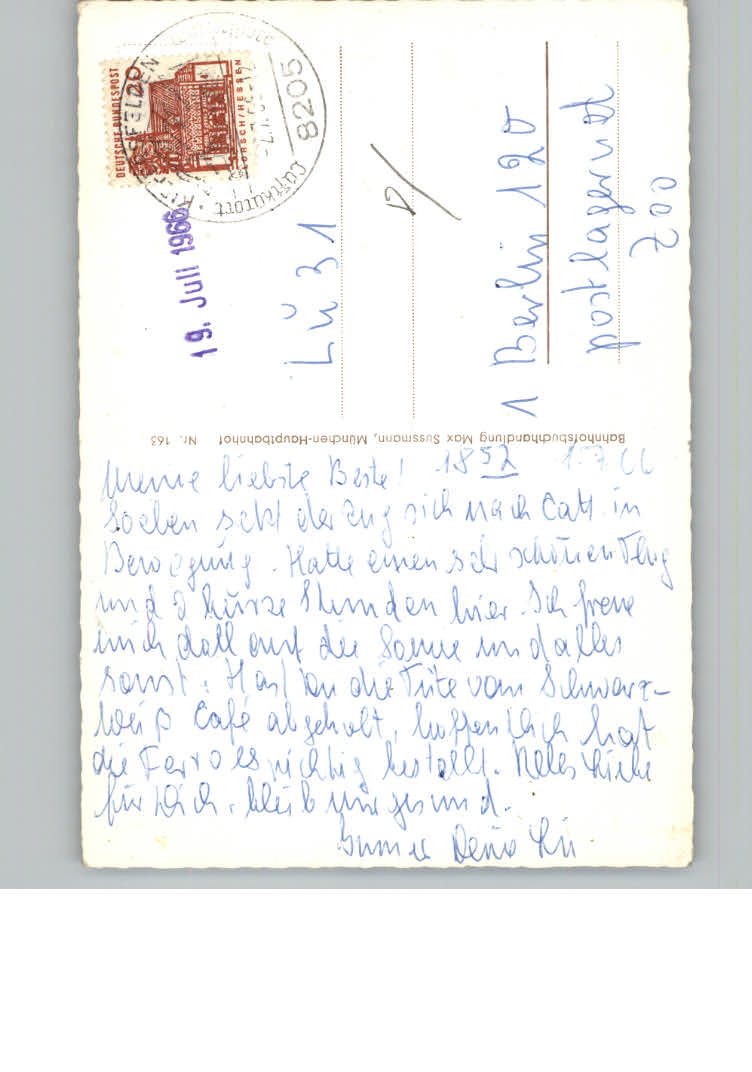 DEUTSCHE BUNDESPOST
20
LORSCH/HESSEN
8205
KIEFERSFELDEN
Luftkurort
19. Juli 1966
Lü 31
1 Berlin 120
postlagernd
Zoo
Bahnhofsbuchhandlung Max Sussmann, München-Hauptbahnhof Nr. 163
Meine liebste Beste! 18 52 1.7.66
Soeben setzt der Zug sich nach Catt. in
Bewegung. Hatte einen sehr schönen Flug
und 3 kurze Stunden hier. Ich freue
mich doll auf die Sonne und alles
sonst. Hast Du die Tüte vom Schwarz-
weiß Café abgeholt, hoffentlich hat
die richtig bestellt. Alles Liebe
für Dich, bleib mir gesund.
Immer Deine Lü